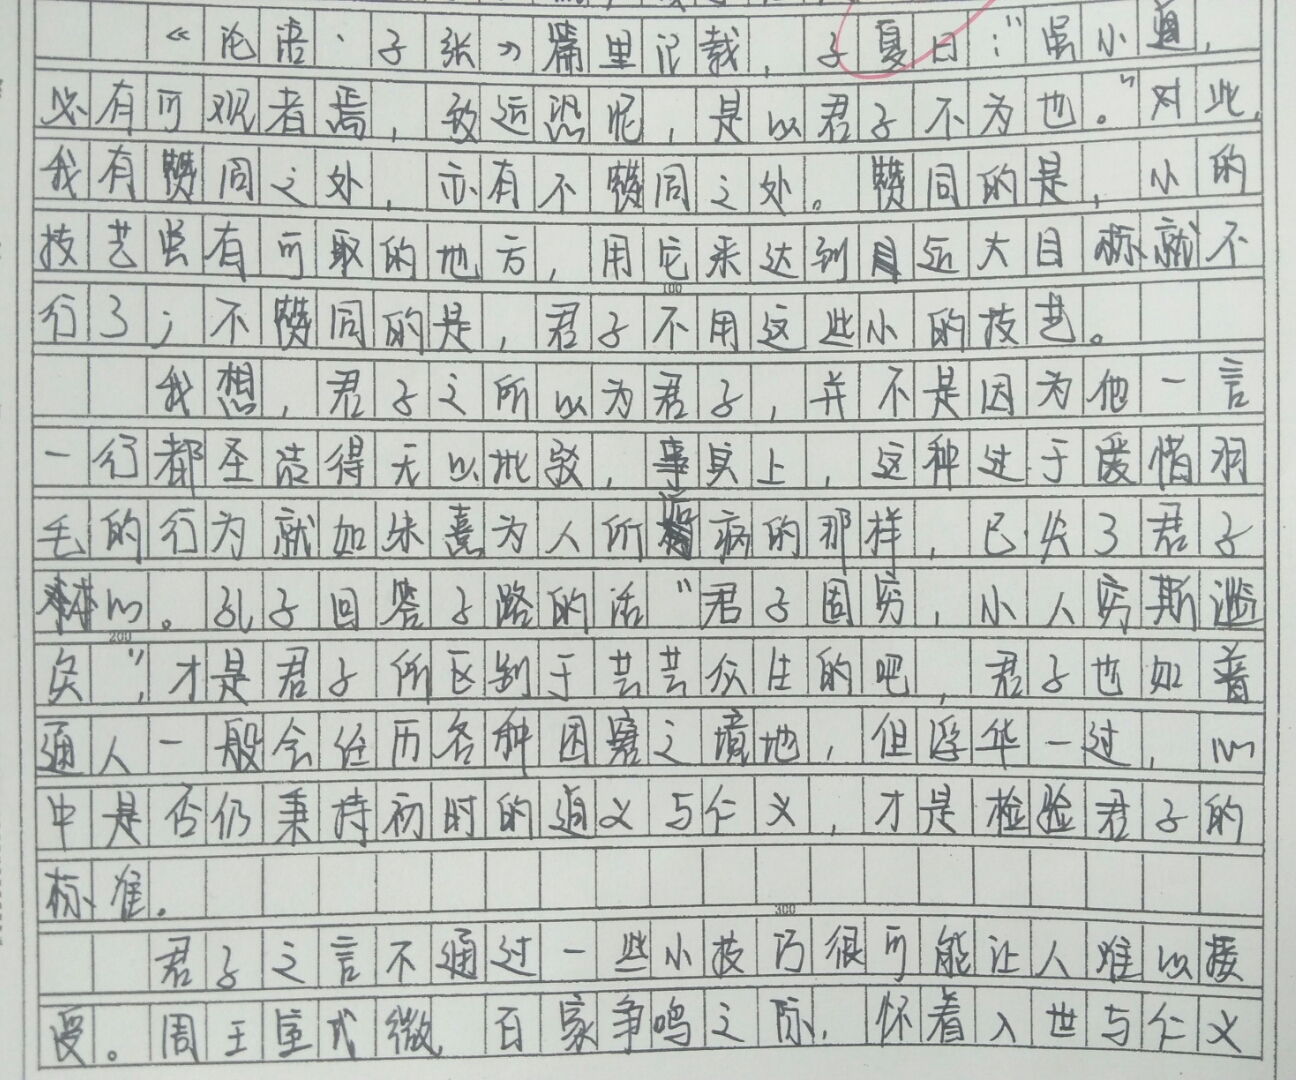 《论语·子张》篇里记载，子夏曰："虽小道，
必有可观者焉，致远恐泥，是以君子不为也。"对此，
我有赞同之处，亦有不赞同之处。赞同的是，小的
技艺虽有可取的地方，用它来达到远大目标就不
行了；不赞同的是，君子不用这些小的技艺。
100
我想，君子之所以为君子，并不是因为他一言
一行都圣洁得无以批驳，事实上，这种过于爱惜羽
毛的行为就如朱熹为人所诟病的那样，已失了君子
本心。孔子回答子路的话"君子固穷，小人穷斯滥
200
矣"，才是君子所区别于芸芸众生的吧，君子也如普
通人一般会经历各种困窘之境地，但浮华一过，心
中是否仍秉持初时的道义与仁义，才是检验君子的
标准。
300
君子之言不通过一些小技巧很可能让人难以接
受。周王室式微，百家争鸣之际，怀着入世与仁义